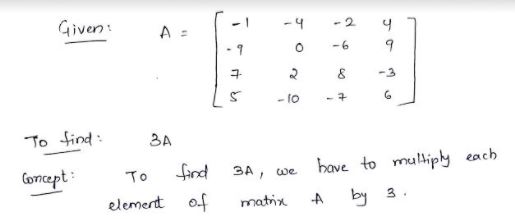 Given: A = [ -1 -4 -2 4
-9 0 -6 9
7 2 8 -3
5 -10 -7 6 ]
To find: 3A
Concept: To find 3A, we have to multiply each
element of matrix A by 3.